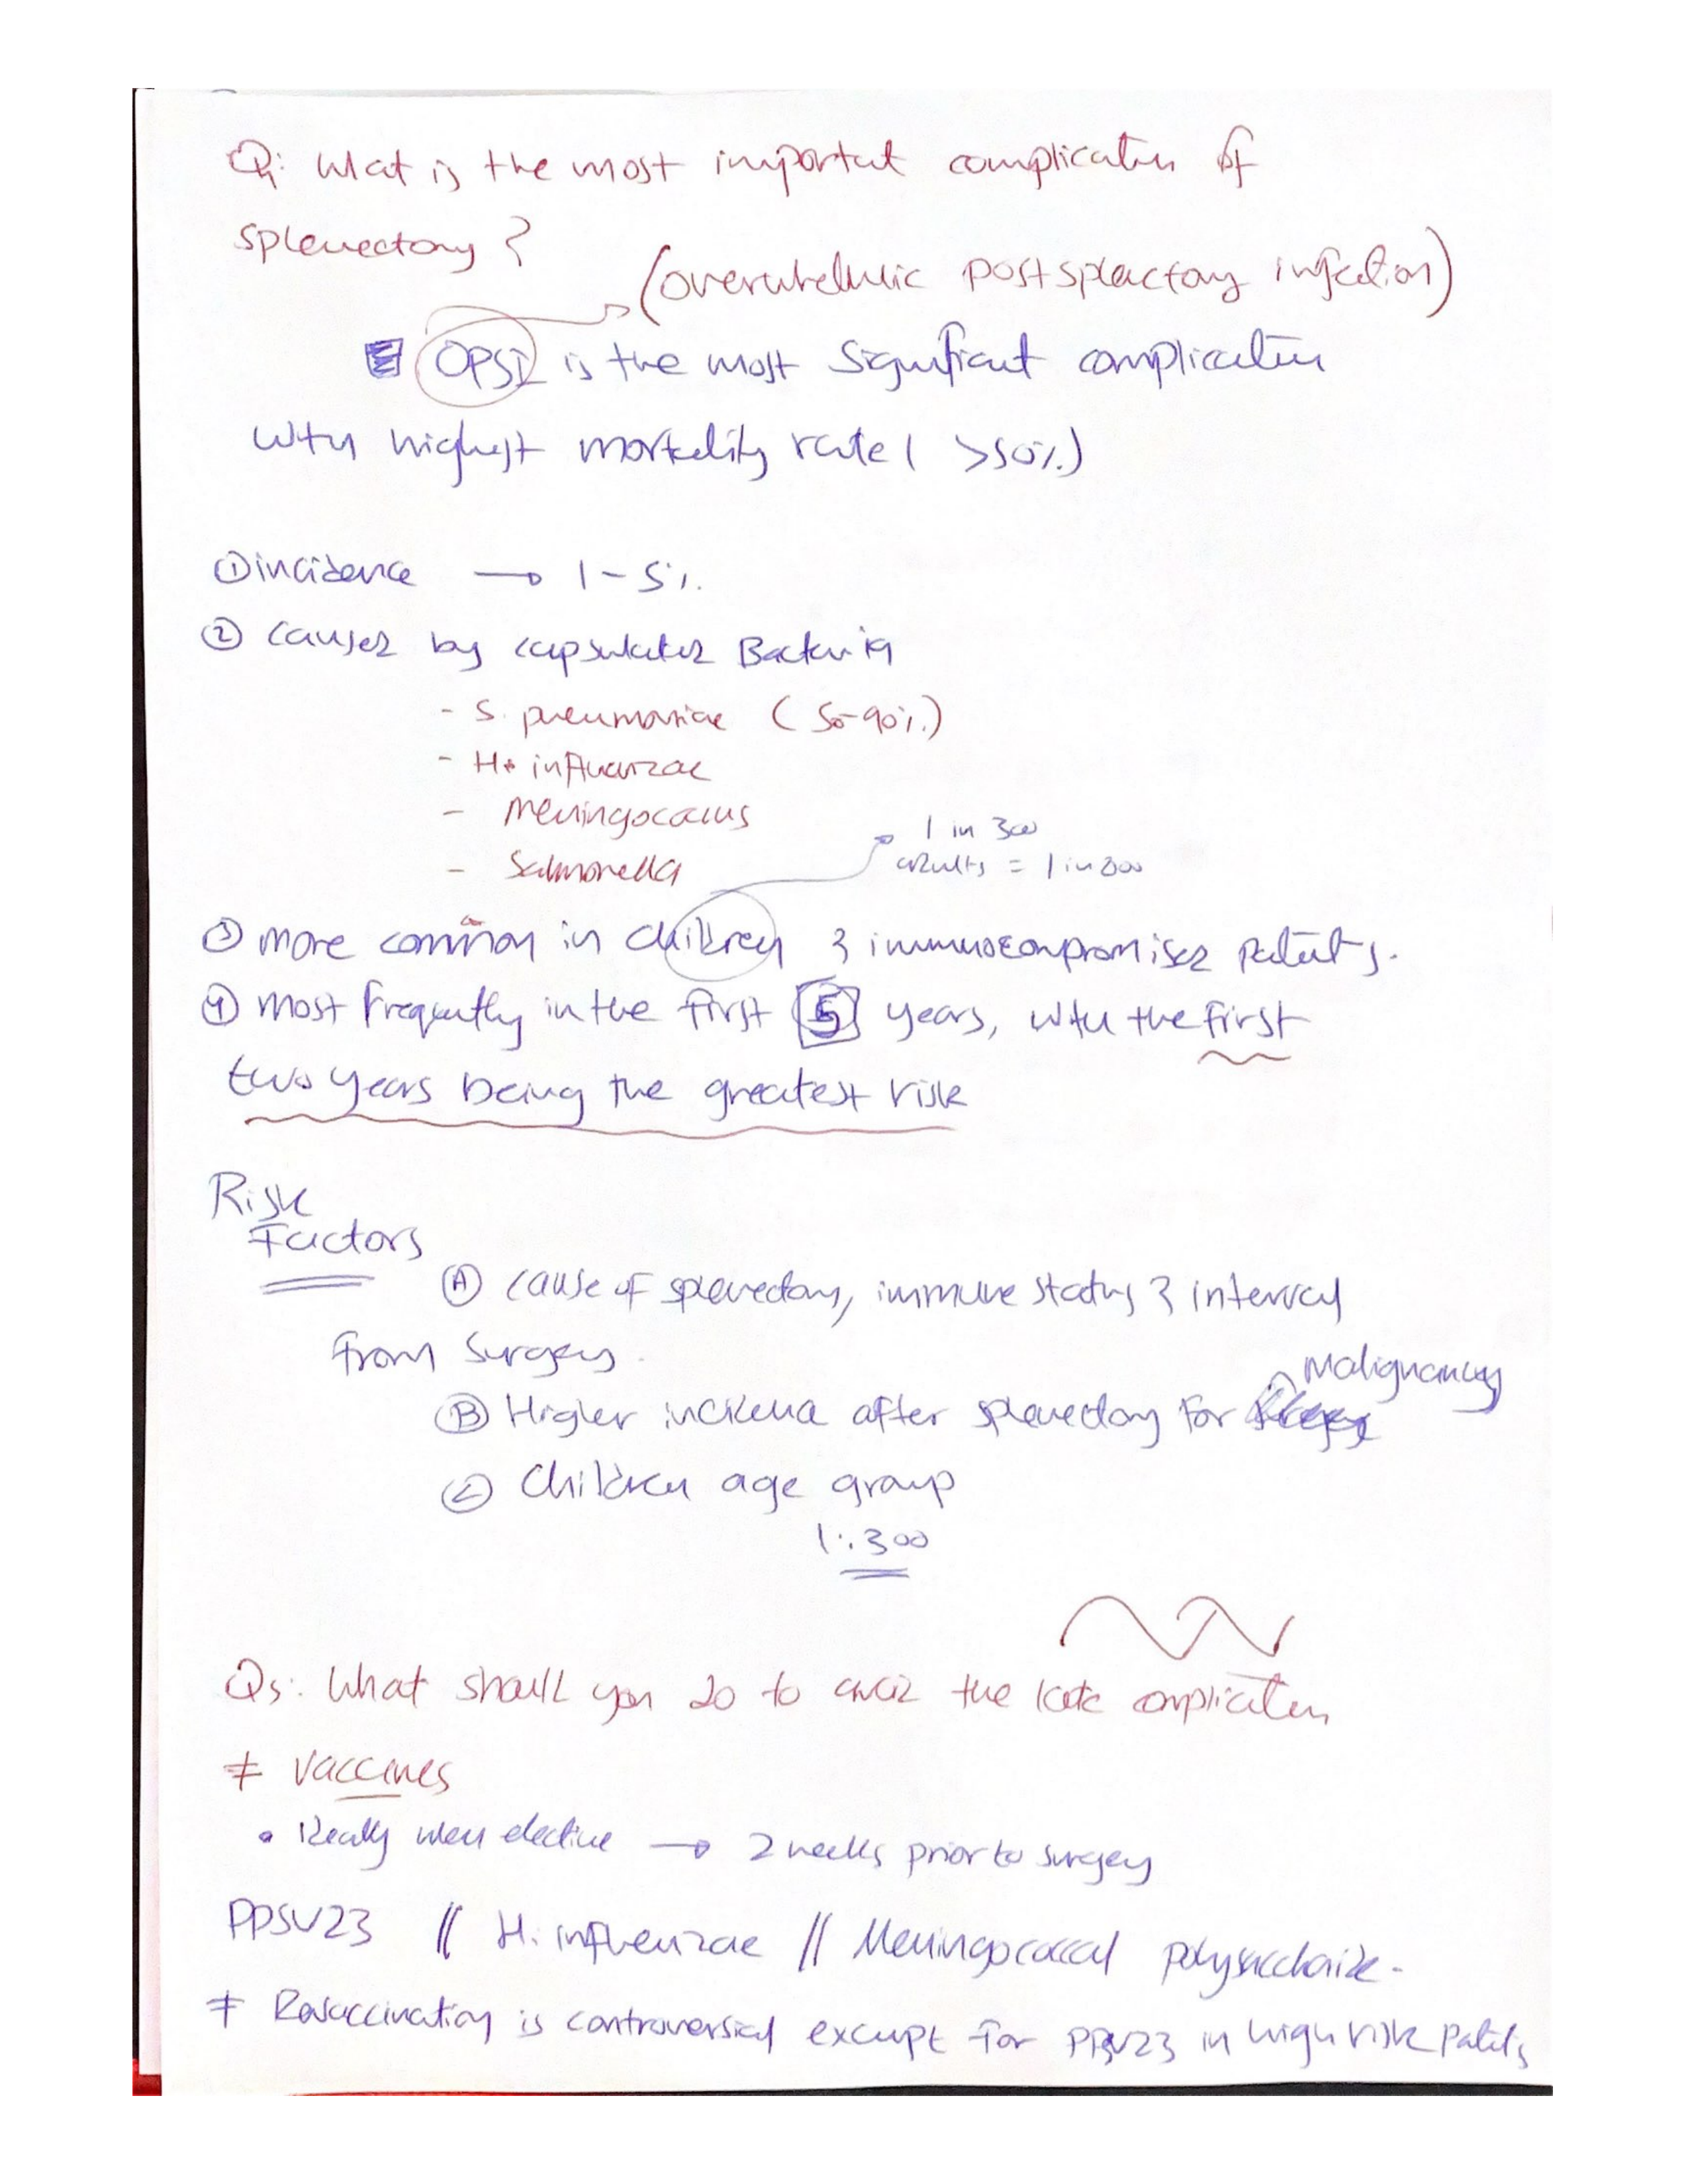 Q4: What is the most important complication of
splenectomy?
(overwhelmic postsplectomy infection)
OPSI is the most significant complication
with highest mortality rate ( >50%)
① incidence → 1-5%.
② caused by capsulated Bacteria
- S. pneumoniae ( 50-90%)
- H. influenzae
- Meningococcus
- Salmonella
1 in 300
adults = 1 in 800
③ more common in children & immunocompromised patients.
④ most frequently in the first 5 years, with the first
two years being the greatest risk
Risk
Factors
Ⓐ cause of splenectomy, immune status & interval
from surgery.
Malignancy
Ⓑ Higher incidence after splenectomy for
Ⓒ Children age group
1:300
Q5: What should you do to avoid the late complication
≠ Vaccines
• Ideally when elective → 2 weeks prior to surgery
PPSV23 // H. influenzae // Meningococcal polysaccharide.
≠ Revaccination is controversial except for PPSV23 in high risk patients